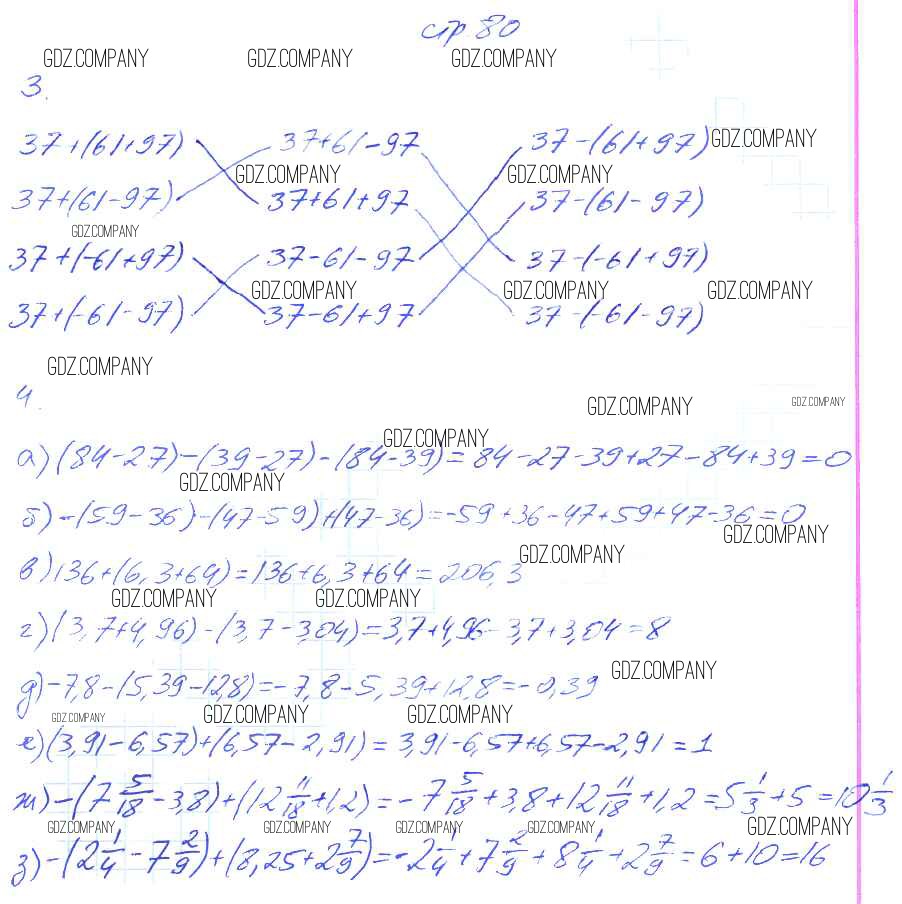 стр 80
GDZ.COMPANY GDZ.COMPANY GDZ.COMPANY
3.
37+(61+97) 37+61-97 37-(61+97) GDZ.COMPANY
GDZ.COMPANY GDZ.COMPANY
37+(61-97) 37+61+97 37-(61-97)
GDZ.COMPANY
37+(-61+97) 37-61-97 37-(-61+97)
GDZ.COMPANY GDZ.COMPANY GDZ.COMPANY
37+(-61-97) 37-61+97 37-(-61-97)
GDZ.COMPANY
4.
GDZ.COMPANY GDZ.COMPANY
GDZ.COMPANY
а) (84-27)-(39-27)-(84-39)=84-27-39+27-84+39=0
GDZ.COMPANY
б) -(59-36)-(47-59)+(47-36)=-59+36-47+59+47-36=0
GDZ.COMPANY
GDZ.COMPANY
в) 136+(6,3+64)=136+6,3+64=206,3
GDZ.COMPANY GDZ.COMPANY
г) (3,7+4,96)-(3,7-3,04)=3,7+4,96-3,7+3,04=8
GDZ.COMPANY
д) -7,8-(5,39-12,8)=-7,8-5,39+12,8=-0,39
GDZ.COMPANY GDZ.COMPANY GDZ.COMPANY
е) (3,91-6,57)+(6,57-2,91)=3,91-6,57+6,57-2,91=1
ж) -(7 5/18-3,8)+(12 11/18+1,2)=-7 5/18+3,8+12 11/18+1,2=5 1/3+5=10 1/3
GDZ.COMPANY GDZ.COMPANY GDZ.COMPANY GDZ.COMPANY GDZ.COMPANY
з) -(2 1/4-7 2/9)+(8,25+2 7/9)=-2 1/4+7 2/9+8 1/4+2 7/9=6+10=16